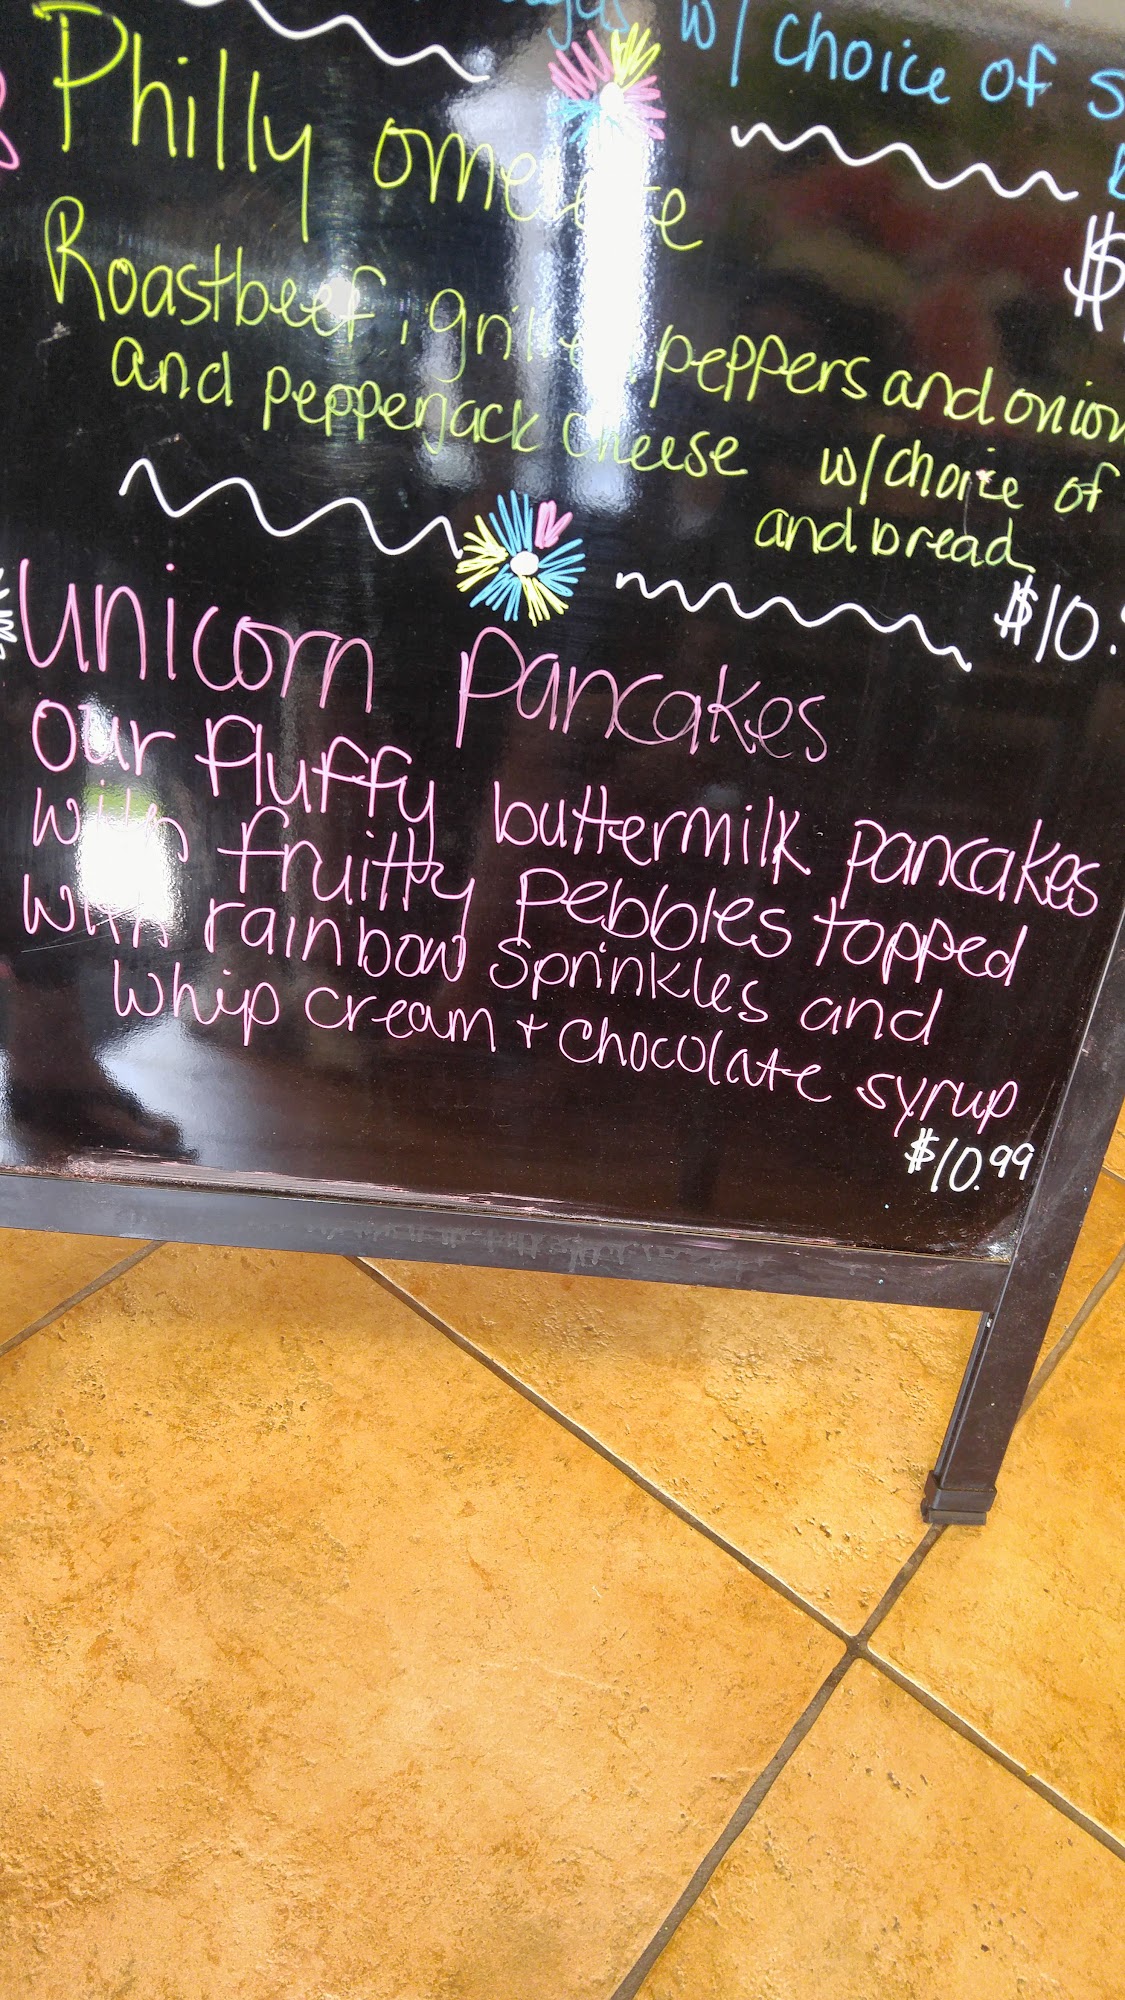 w/ choice of
Philly omelette
$
Roastbeef, grilled peppers and onion
and pepperjack cheese w/choice of
and bread
$10.9
Unicorn Pancakes
our fluffy buttermilk pancakes
with fruitty pebbles topped
with rainbow sprinkles and
whip cream + chocolate syrup
$10.99